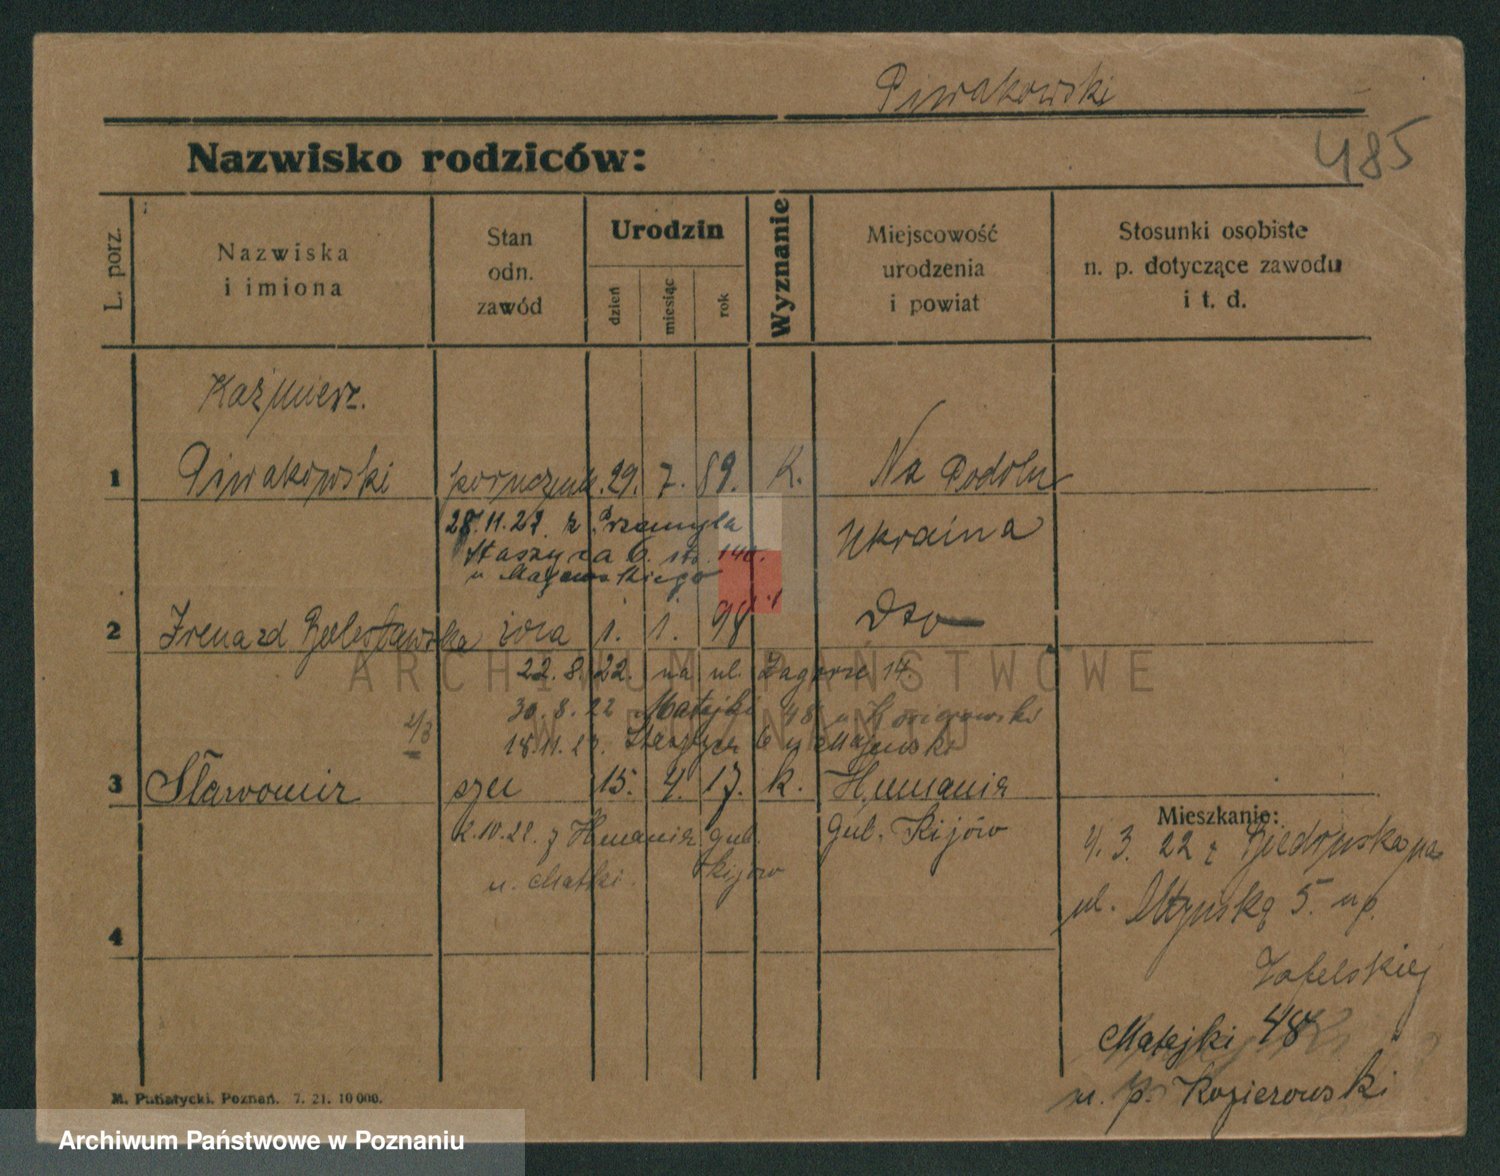 Piwakowski
485
Nazwisko rodziców:
L. porz.
Nazwiska
i imiona
Stan
odn.
zawód
Urodzin
dzień
miesiąc
rok
Wyznanie
Miejscowość
urodzenia
i powiat
Stosunki osobiste
n. p. dotyczące zawodu
i t. d.
Kaźmierz.
1 Piwakowski porucznik. 29. 7. 89. k. Na Podolu
28.11.27 z Przemyśla Ukraina
Staszyca 6. 140.
u Majewskiego
2 Irena zd żona 1. 1. 98 Dto
ARCHIWUM PAŃSTWOWE
W POZNANIU
22.8.22. na ul. Zagórze 14.
30.8.22 Matejki 48 u
18.11. 6 u
2/3
3 Sławomir syn 15. 4. 17. k. Humania
2.10.22. z Humania gub. gub. Kijów
u. Matki. Kijów
4
Mieszkanie:
4. 3. 22 z
ul. 5. u p.
Matejki 48
u. p. Kozierowski
M. Putiatycki, Poznań. 7. 21. 10 000.
Archiwum Państwowe w Poznaniu